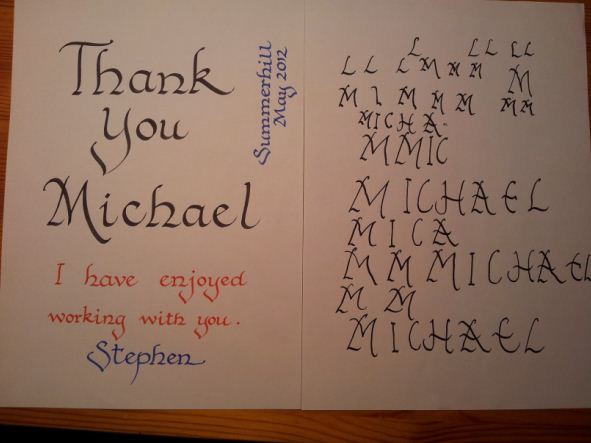 Thank
You
Michael
Summerhill
May 2012
I have enjoyed
working with you.
Stephen
L L L L L
L L L M M M M
M I M M M M M
MICHA
M MIC
MICHAEL
MICA
M M MICHAEL
M M
MICHAEL